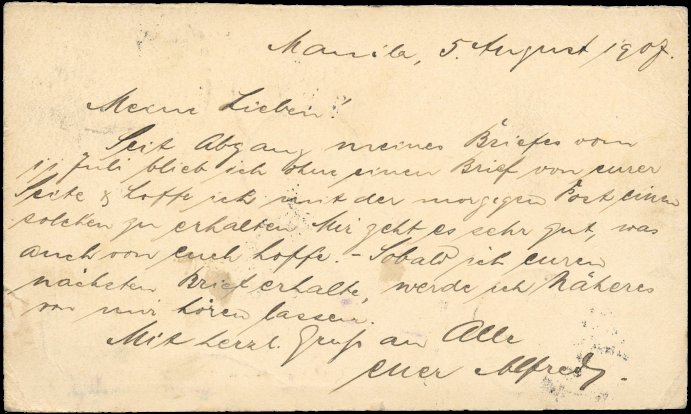 Manila, 5. August 1907.
Meine Lieben!
Seit Abgang meines Briefes vom
11 Juli blieb ich ohne einen Brief von eurer
Seite & hoffe ich mit der morgigen Post einen
solchen zu erhalten. Mir geht es sehr gut, was
auch von euch hoffe. – Sobald ich euren
nächsten Brief erhalte, werde ich Näheres
von mir hören lassen.
Mit herzl. Gruß an Alle
euer Alfred.